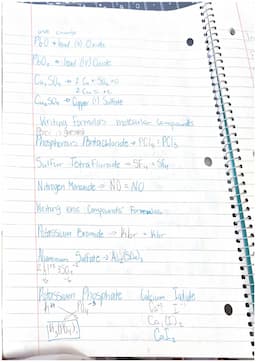 PbO → lead (II) Oxide
PbO₂ → lead (IV) Oxide
Cu₂SO₄ → 2 Cu + SO₄ = 0
Cu₂SO₄ → Copper (I) Sulfate
Writing Formulas molecular Compounds
Phosphorous Pentachloride → PCl₅ = PCl₅
Sulfur Tetrafluoride → SF₄ = SF₄
Nitrogen Monoxide → NO = NO
Writing ionic Compounds Formulas
Potassium Bromide → KBr = KBr
Aluminum Sulfate → Al₂(SO₄)₃
Potassium Phosphate Calcium Iodide
Ca⁺² I⁻
Ca₁(I)₂
CaI₂